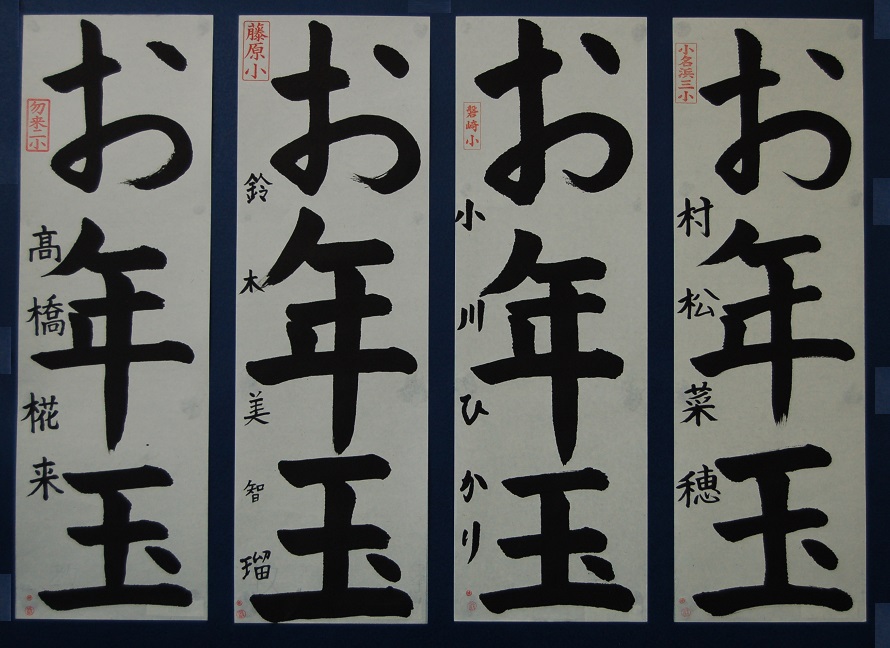 お年玉
村松菜穂
小名浜三小
お年玉
小川ひかり
磐崎小
お年玉
鈴木美智瑠
藤原小
お年玉
高橋椛来
勿来二小